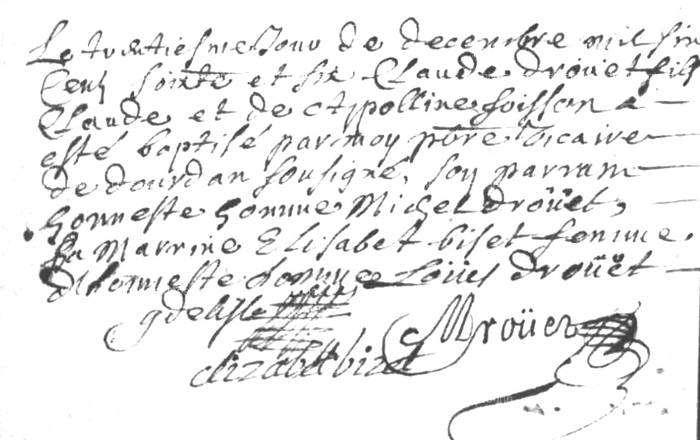 Le trentiesme Jour de decembre mil six
Cens soixte et six Claude drouet fils
Claude et de Appolline foisson a
esté baptisé par moy pbre vicaire
de dourdan soussigné, son parrain
honneste homme Michel droüet,
sa Marrine Elisabet biset femme
dhonneste homme Loüis droüet
gdelisle
Mroüet
elizabet bizet